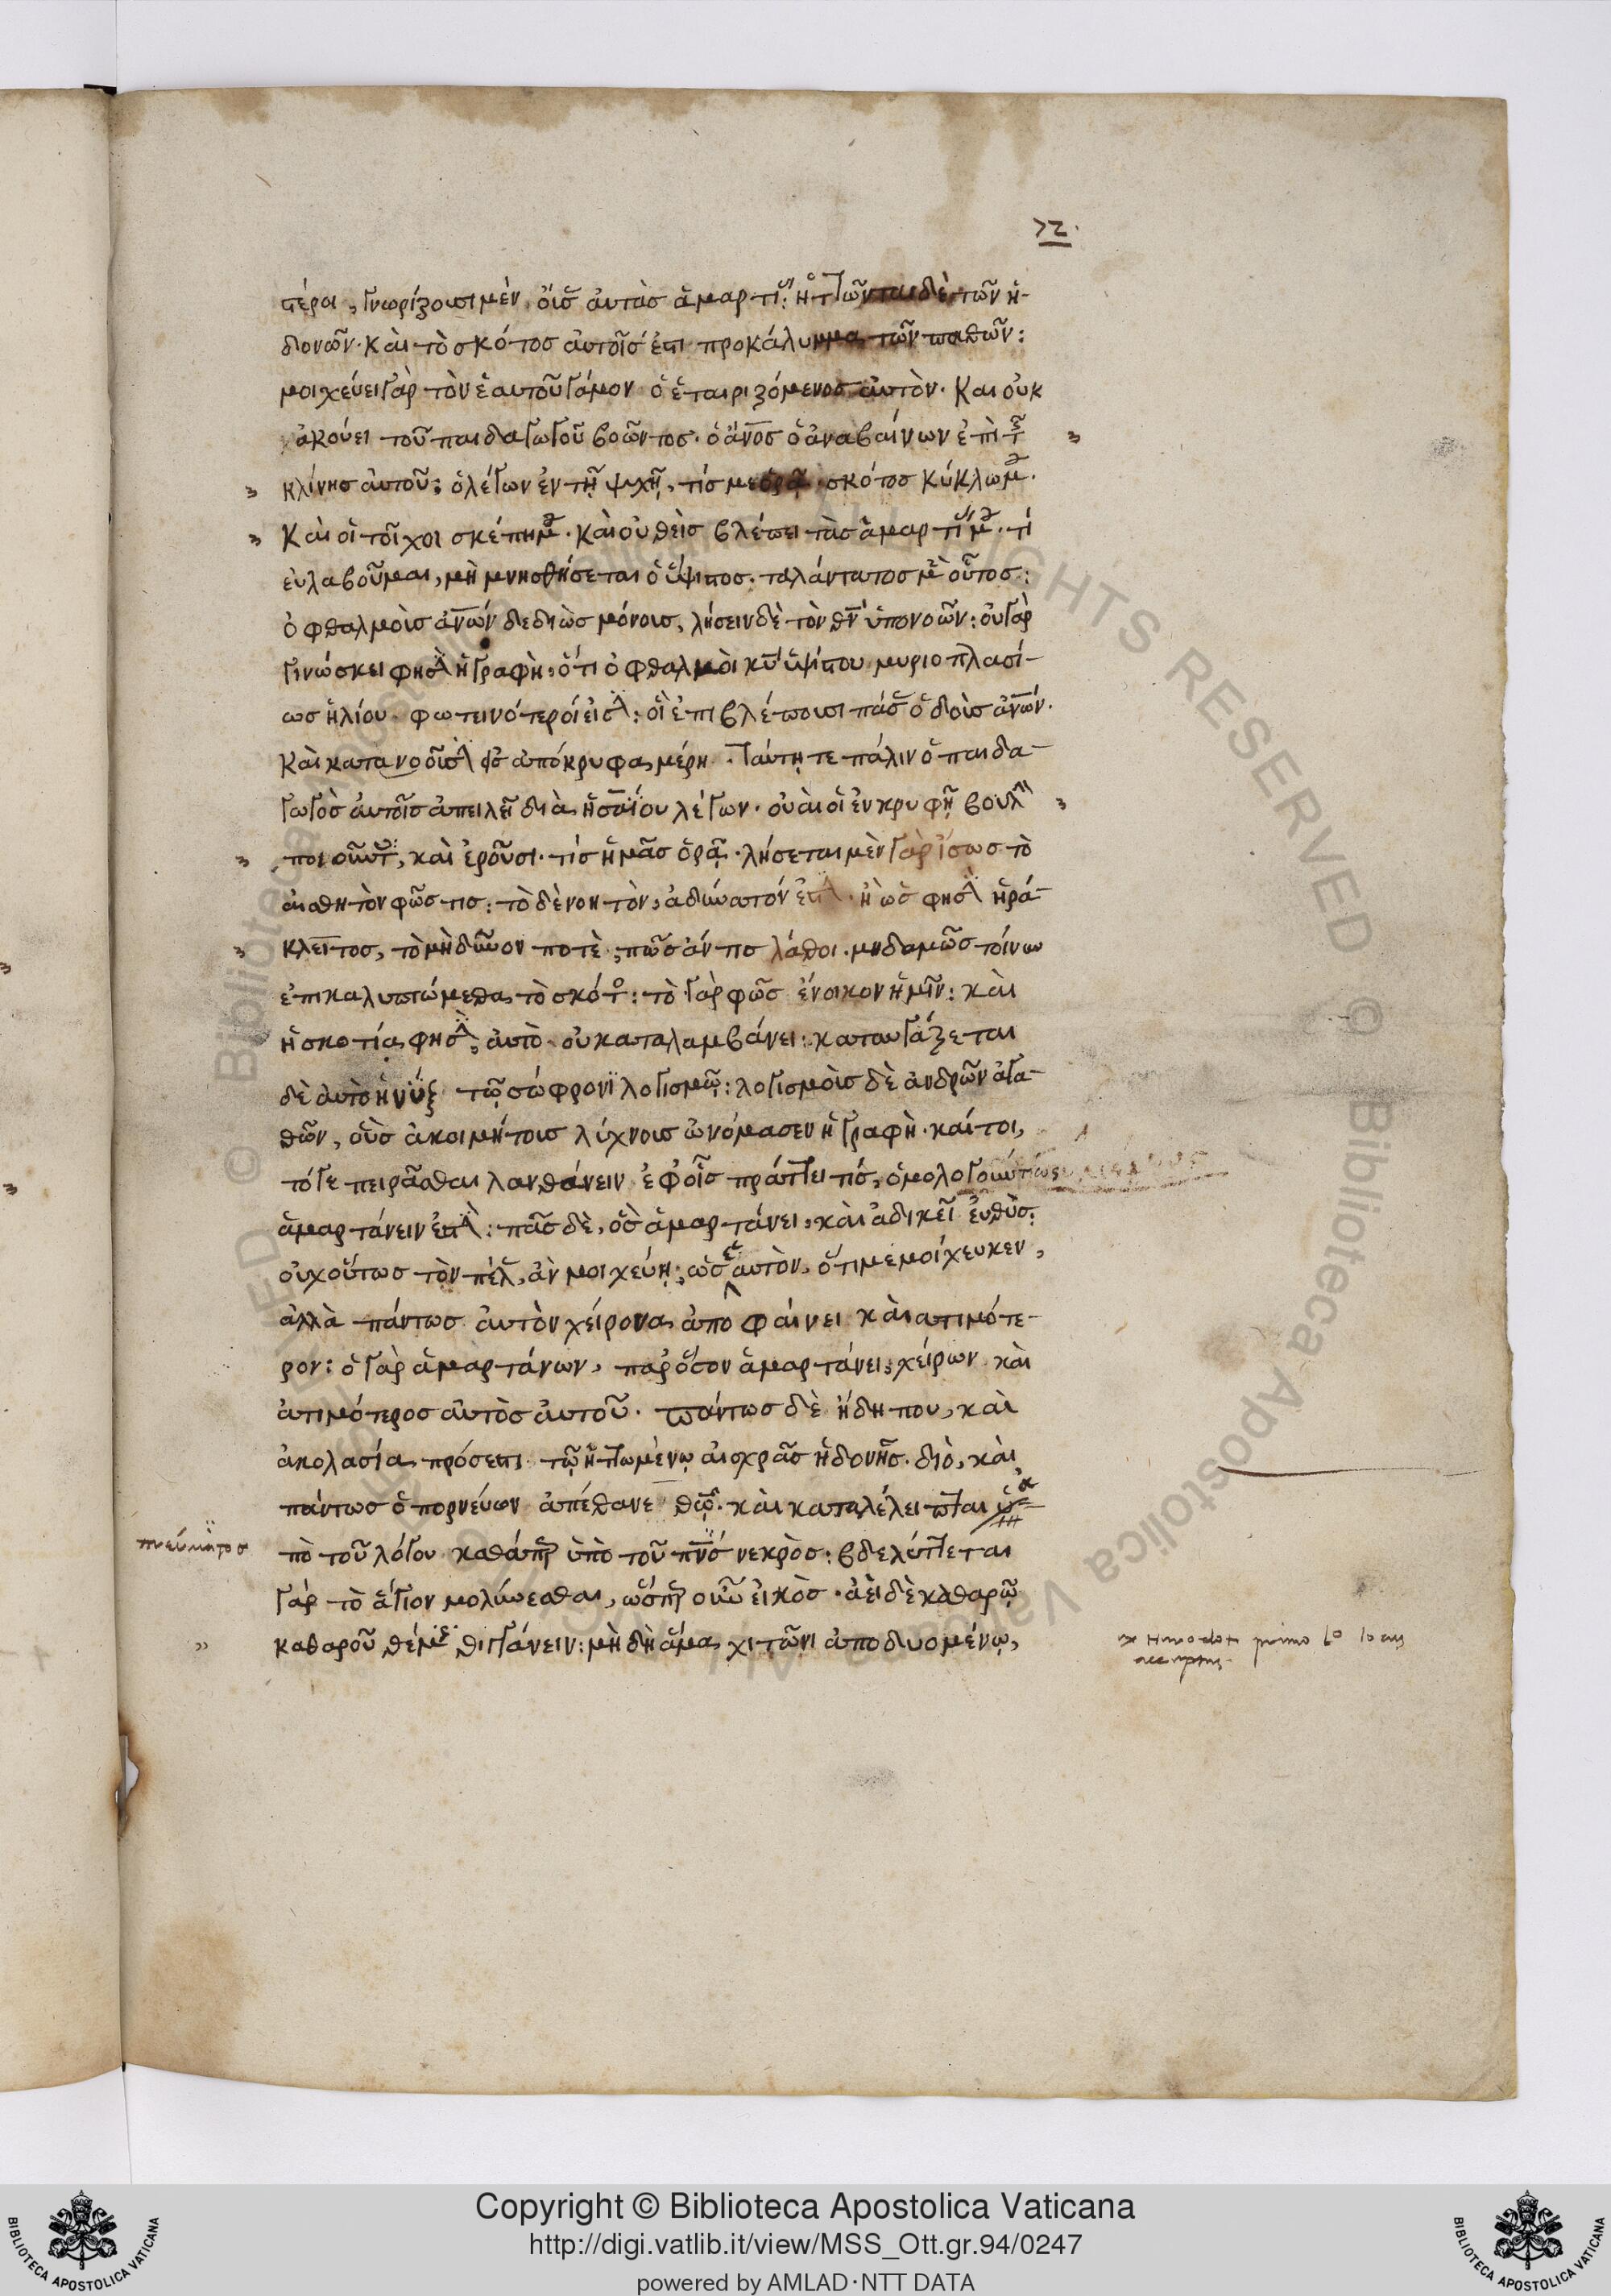 72.
στέροι, γνωρίζουσι μὲν, οἷς αὐτὰς ἁμαρτί: ἡττῶνται δὲ τῶν ἡ-
δονῶν· καὶ τὸ σκότος αὐτοῖς ἐστι προκάλυμμα τῶν παθῶν:
μοιχεύει γὰρ τὸν ἑαυτοῦ γάμον ὁ ἑταιριζόμενος αὐτὸν. Και οὐκ
ἀκούει τοῦ παιδαγωγοῦ βοῶντος· ὁ ἄνος ὁ ἀναβαίνων ἐπὶ τ
κλίνης αὐτοῦ; ὁ λέγων ἐν τῇ ψυχῇ, τίς με ὁρᾷ· σκότος κύκλω μ.
Καὶ οἱ τοῖχοι σκέπη μ. καὶ οὐθεὶς βλέπει τὰς ἁμαρτί μ. τί
εὐλαβοῦμαι, μὴ μνησθήσεται ὁ ὕψιστος. ταλάντατος μὲ οὗτος:
ὀφθαλμοὶς ἀνων δεδιὼς μόνοις, λήσειν δὲ τὸν θν ὑπονοῶν: οὐ γὰρ
γινώσκει φησ ἡ γραφὴ, ὅτι ὀφθαλμοὶ κυ ὑψίστου μυριοπλασί-
ως ἡλίου φωτεινότεροί εἰσ: οἳ ἐπιβλέπουσι πάσ ὁδοὺς ἀνων.
Καὶ κατανοοῦσ εἰς ἀπόκρυφα μέρη. Ταύτῃ τε πάλιν ὁ παιδα-
γωγὸς αὐτοῖς ἀπειλεῖ διὰ ἡσαΐου λέγων. οὐαὶ οἱ ἐν κρυφῇ βουλ
ποιοῦντ, καὶ ἐροῦσι. τίς ἡμᾶς ὁρᾷ. λήσεται μὲν γὰρ ἴσως τὸ
αἰσθητὸν φῶς τις: τὸ δὲ νοητὸν, ἀδύνατόν ἐστ. ἢ ὡς φησ ἡρά-
κλειτος, τὸ μὴ δῦνον ποτὲ, πῶς άν τις λάθοι. μηδαμῶς τοίνυν
ἐπικαλυπτώμεθα τὸ σκότο: τὸ γὰρ φῶς ἔνοικον ἡμῖν: καὶ
ἡ σκοτία, φησ, αὐτὸ οὐ καταλαμβάνει: καταυγάζεται
δὲ αὐτὸ ἡ νὺξ τῷ σώφρονι λογισμῷ: λογισμοὶς δὲ ἀνδρῶν ἀγα-
θῶν, οὓς ἀκοιμήτοις λύχνοις ὠνόμασεν ἡ γραφὴ. καίτοι,
τό γε πειρᾶσθαι λανθάνειν ἐφ οἷς πράττει τις, ὁμολογουμένως
ἁμαρτάνειν ἐστ: πᾶς δὲ, ὃς ἁμαρτάνει, καὶ ἀδικεῖ εὐθὺς:
οὐχ οὕτως τὸν πέλ, ἂν μοιχεύῃ; ὡς ἑαυτὸν, ὅτι μεμοίχευκεν,
ἀλλὰ πάντως αὐτὸν χείρονα ἀποφαίνει καὶ ατιμότε-
ρον: ὁ γὰρ ἁμαρτάνων, παρ ὅσον ἁμαρτάνει, χείρων καὶ
ἀτιμότερος αὐτὸς αὑτοῦ. πάντως δὲ ἤδη που, καὶ
ἀκολασία πρόσεστι τῷ ἡττωμένῳ αἰσχρᾶς ἡδονῆς. διὸ, καὶ
πάντως ὁ πορνεύων ἀπέθανε θῷ. καὶ καταλέλειπται ὑ
πνεύματος
πὸ τοῦ λόγου καθάπερ ὑπὸ τοῦ πνσ νεκρὸς: βδελύττεται
γὰρ τὸ ἅγιον μολύνεσθαι, ὥσπερ οὖν εἰκὸς. ἀεὶ δὲ καθαρῷ
καθαροῦ θέμις θιγγάνειν: μὴ δὴ ἅμα χιτῶνι ἀποδυομένῳ,
ex Herodot primo lo locus
acceptus
Copyright © Biblioteca Apostolica Vaticana
http://digi.vatlib.it/view/MSS_Ott.gr.94/0247
powered by AMLAD·NTT DATA
BIBLIOTECA APOSTOLICA VATICANA
BIBLIOTECA APOSTOLICA VATICANA